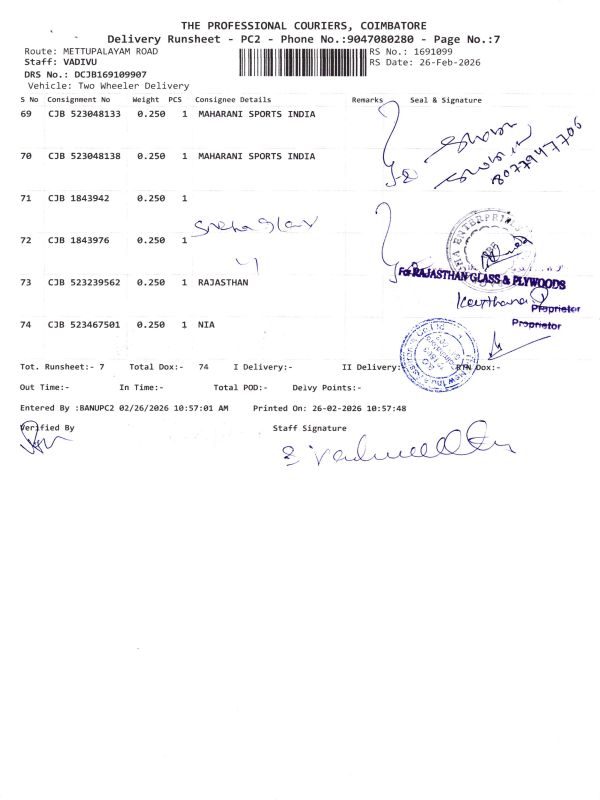 THE PROFESSIONAL COURIERS, COIMBATORE
Delivery Runsheet - PC2 - Phone No.:9047080280 - Page No.:7
Route: METTUPALAYAM ROAD RS No.: 1691099
Staff: VADIVU RS Date: 26-Feb-2026
DRS No.: DCJB169109907
Vehicle: Two Wheeler Delivery
S No Consignment No Weight PCS Consignee Details Remarks Seal & Signature
69 CJB 523048133 0.250 1 MAHARANI SPORTS INDIA
70 CJB 523048138 0.250 1 MAHARANI SPORTS INDIA
8077947706
71 CJB 1843942 0.250 1
72 CJB 1843976 0.250 1
ENTERPRISES
For RAJASTHAN GLASS & PLYWOODS
73 CJB 523239562 0.250 1 RAJASTHAN
Proprietor
74 CJB 523467501 0.250 1 NIA
Proprietor
Tot. Runsheet:- 7 Total Dox:- 74 I Delivery:- II Delivery:- RTN Dox:-
Out Time:- In Time:- Total POD:- Delvy Points:-
Entered By :BANUPC2 02/26/2026 10:57:01 AM Printed On: 26-02-2026 10:57:48
Verified By Staff Signature